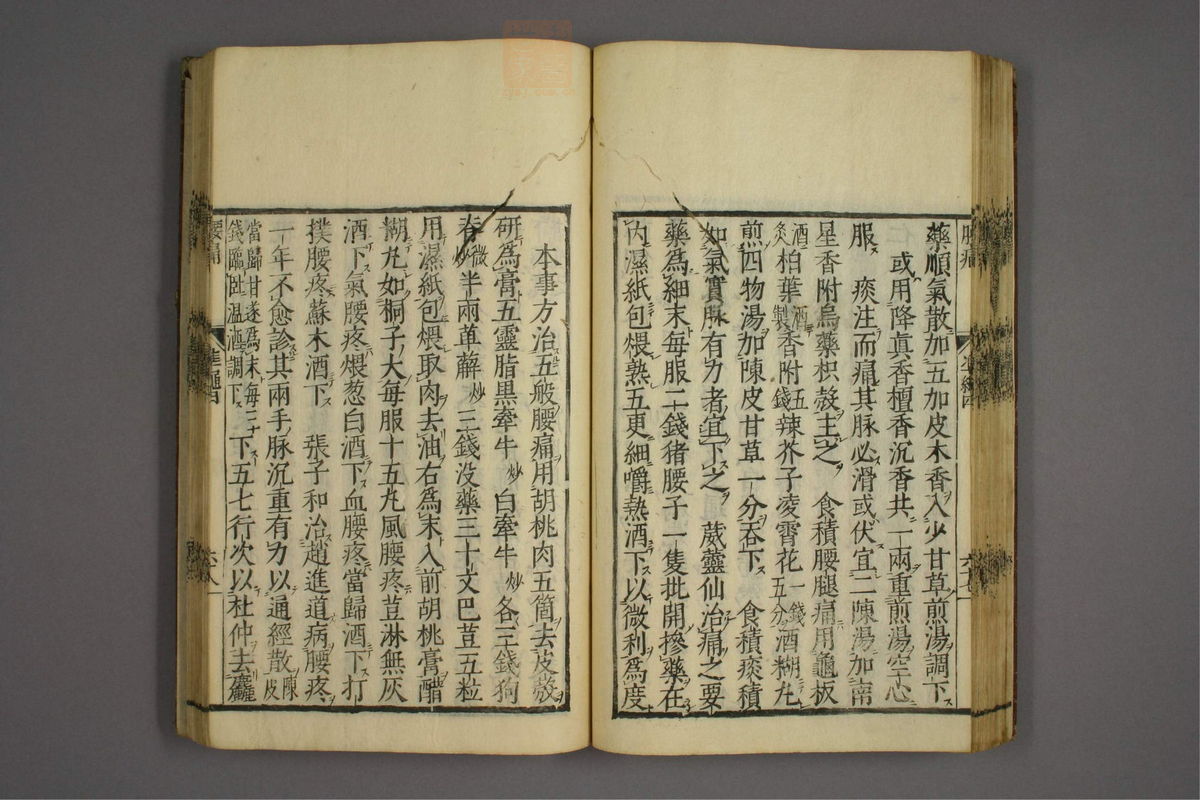 藥順氣散加五加皮木香入少甘草煎湯調下
或用降真香檀香沉香共一兩重煎湯空心
服 痰注而痛其脉必滑或伏宜二陳湯加南
星香附烏藥枳殼主之 食積腰腿痛用龜板
酒炙柏葉酒製香附五錢辣芥子凌霄花一錢五分酒糊丸
煎四物湯加陳皮甘草一分吞下 食積痰積
如氣實脉有力者宜下之 葳蕓仙治痛之要
藥為細末每服二錢猪腰子一隻批開摻藥在
內濕紙包煨熟五更細嚼熱酒下以微利為度
本事方治五般腰痛用胡桃肉五箇去皮殼
研為膏五靈脂黑牽牛炒白牽牛炒各三錢狗
脊微炒半兩萆薢炒三錢没藥三十文巴荳五粒
用濕紙包煨取肉去油右為末入前胡桃膏醋
糊丸如桐子大每服十五丸風腰疼荳淋無灰
酒下氣腰疼煨葱白酒下血腰疼當歸酒下打
撲腰疼蘇木酒下 張子和治趙進道病腰疼
一年不愈診其兩手脉沉重有力以通經散陳皮
當歸甘遂為末每三錢臨卧温酒調下下五七行次以杜仲去麤
腰痛